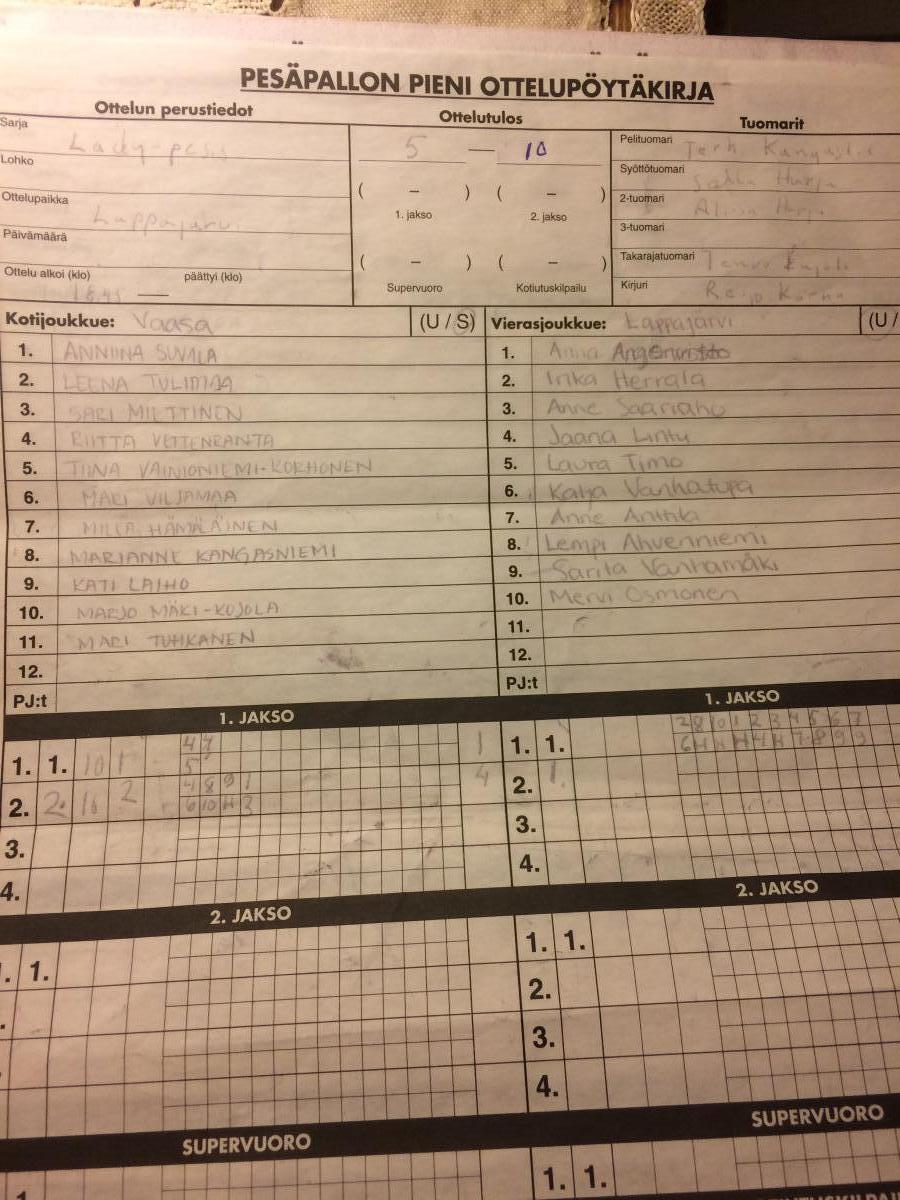 PESÄPALLON PIENI OTTELUPÖYTÄKIRJA
Ottelun perustiedot
Ottelutulos
Tuomarit
Sarja
Lady-pesis
Lohko
Ottelupaikka
Lappajärvi
Päivämäärä
Ottelu alkoi (klo) päättyi (klo)
18.45 —
5 — 10
( – ) ( – )
1. jakso 2. jakso
( – ) ( – )
Supervuoro Kotiutuskilpailu
Pelituomari
Syöttötuomari
2-tuomari
3-tuomari
Takarajatuomari
Kirjuri
Kotijoukkue: Vaasa (U / S)
1. ANNIINA SUVALA
2. LEENA TULIMAA
3. SARI MIETTINEN
4. RIITTA VETTENRANTA
5. TIINA VAINIONIEMI-KORHONEN
6. MARI VILJAMAA
7. MILLA HÄMÄLÄINEN
8. MARIANNE KANGASNIEMI
9. KATI LAIHO
10. MARJO MÄKI-KOJOLA
11. MARI TUHKANEN
12.
PJ:t
Vierasjoukkue: Lappajärvi (U /
1. Anna
2. Irika Herrala
3. Anne Saariaho
4. Jaana Lintu
5. Laura Timo
6. Katja Vanhatupa
7. Anne Anttila
8. Lempi Ahvenniemi
9. Sarita Vanhamäki
10. Mervi Osmonen
11.
12.
PJ:t
1. JAKSO
1. 1. 10 1 4 7 1
5
2. 2. 10 2 4 8 9 1 4
6 10 11 3
3.
4.
1. JAKSO
1. 1. 2 8 10 1 2 3 4 5 6 7
6 4 4 4 4 4 7 8 9 9
2. 1.
3.
4.
2. JAKSO
1.
2. JAKSO
1. 1.
2.
3.
4.
SUPERVUORO
1.
SUPERVUORO
1. 1.